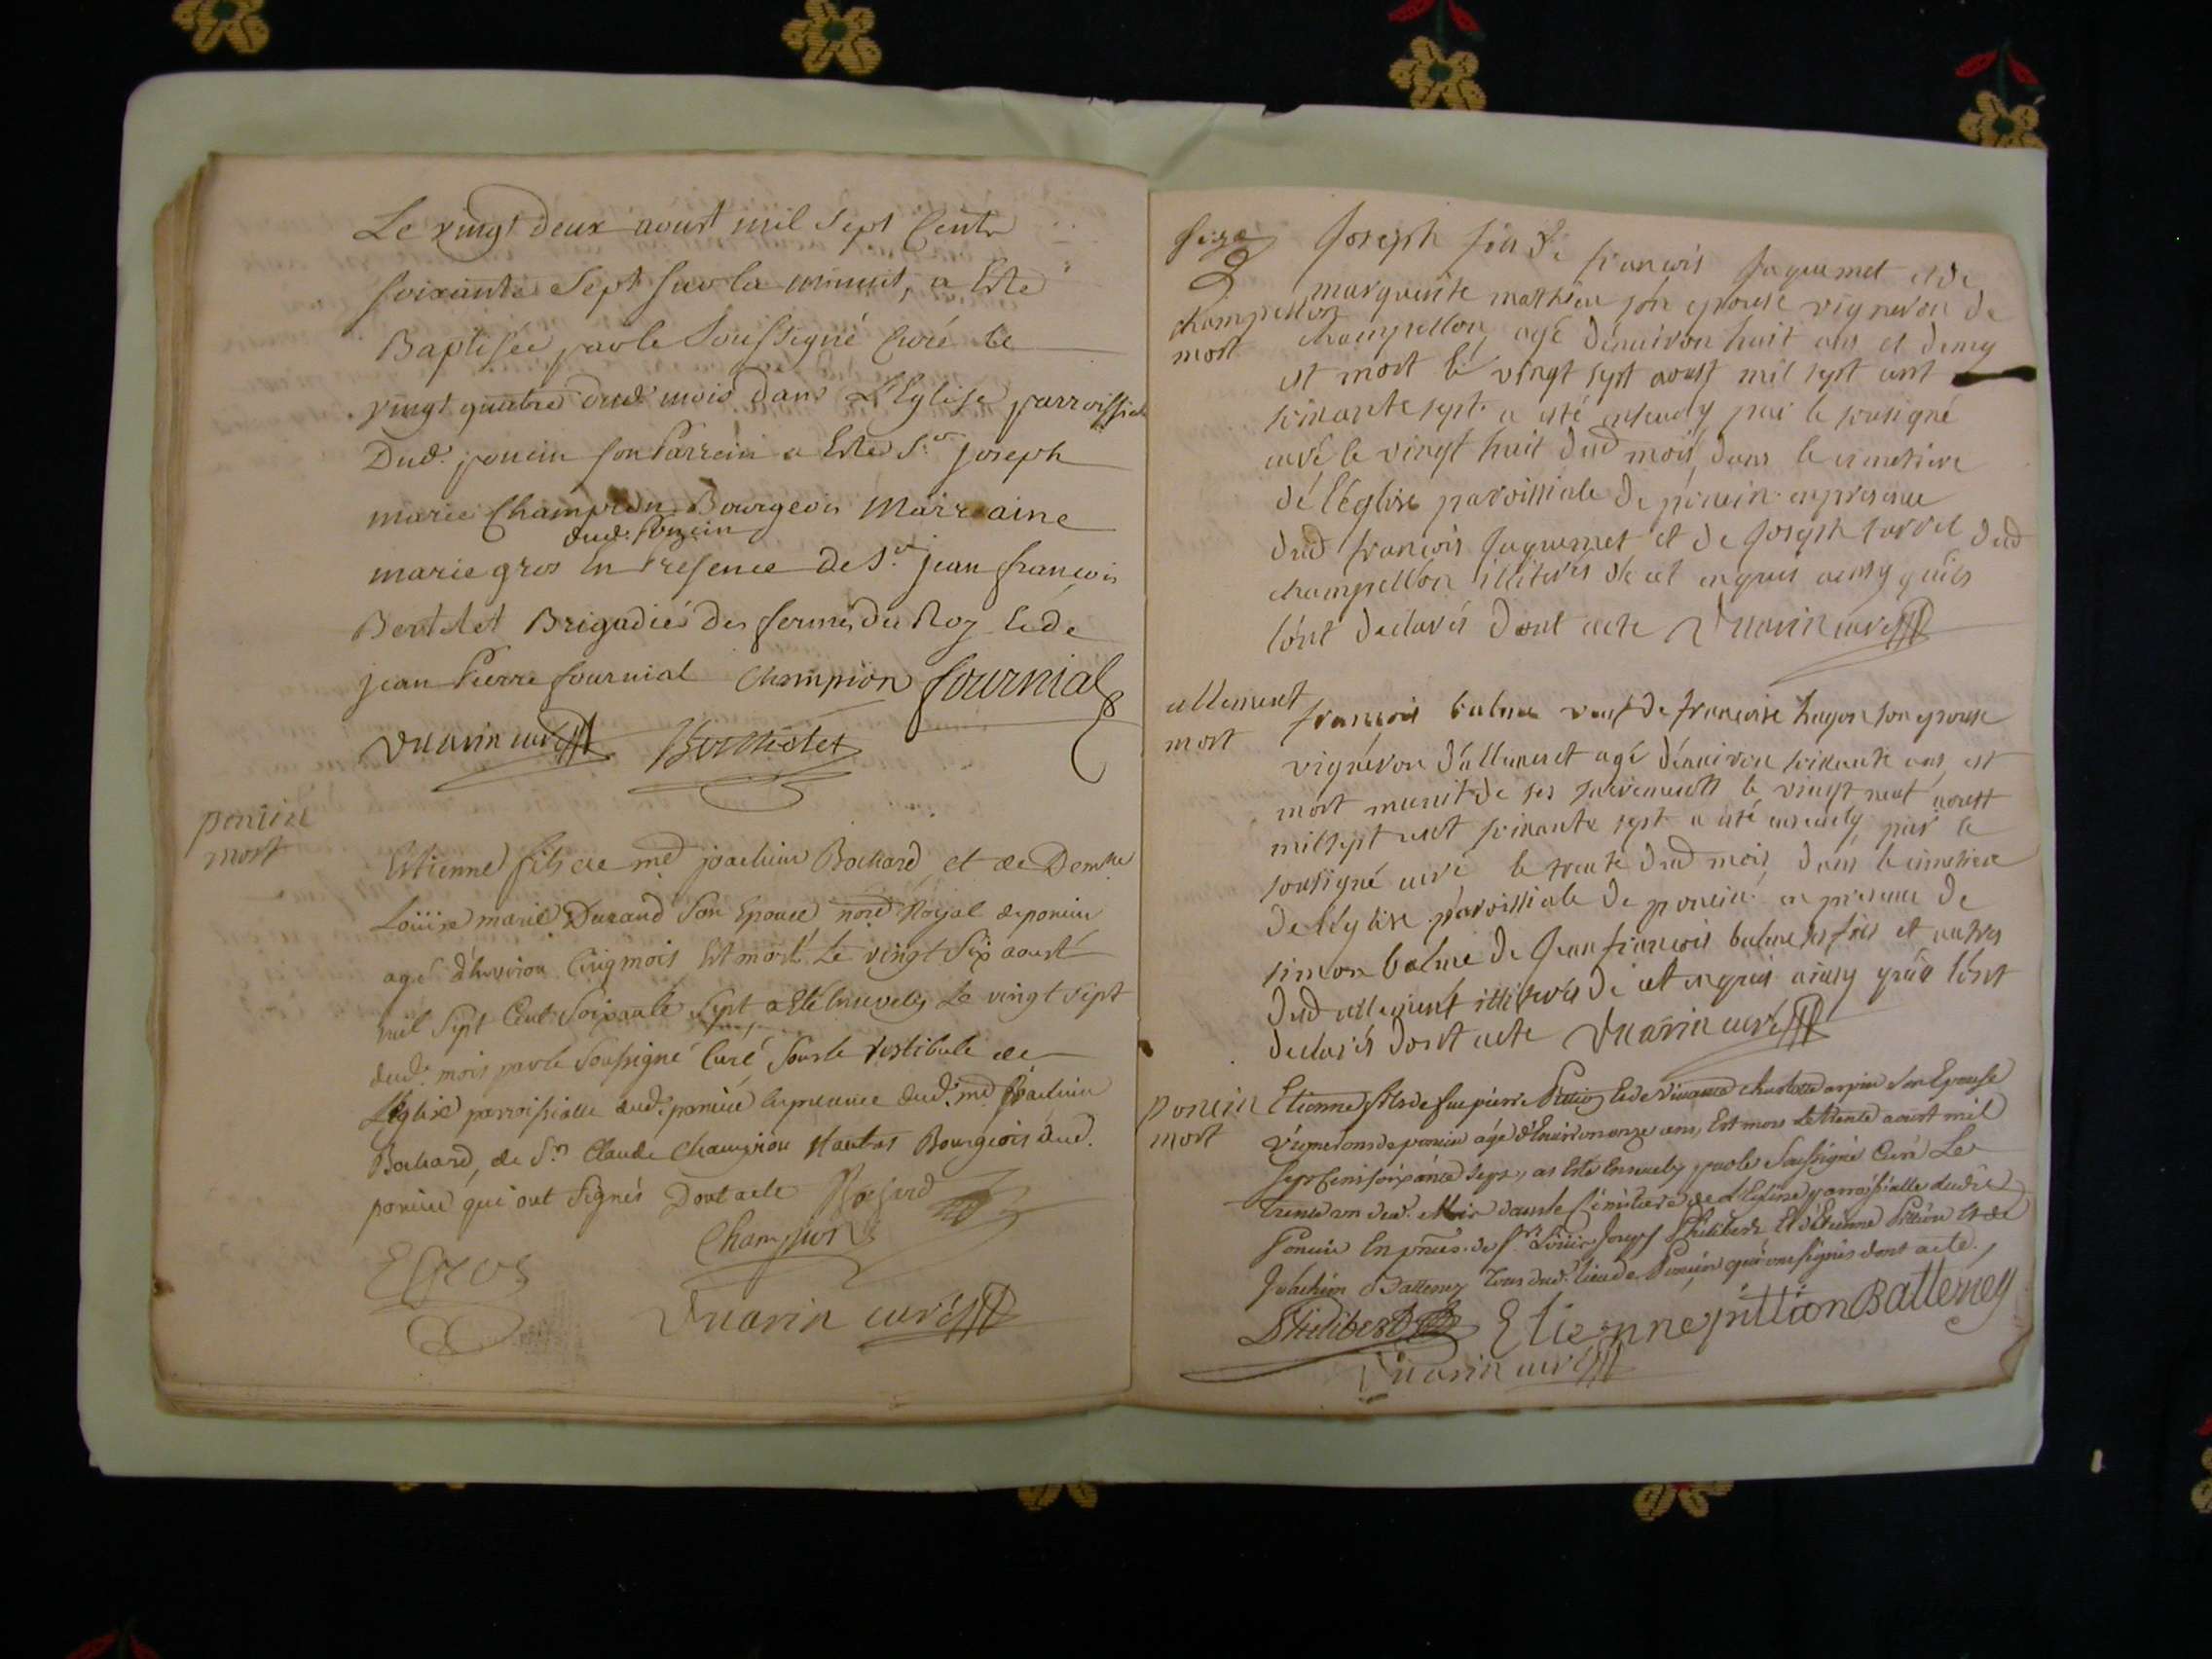 Le vingt deux aoust mil sept Cents
soixante Sept sur la minuit, a Esté
Baptisée par le Soussigné Curé le
vingt quatre dud. mois dans L'Eglise parroissiale
Dud. poncin son Parrein a Esté Sr. joseph
marie Champion Bourgeois Marraine
dud. Poncin
marie gros En Presence de Sr. jean francois
Bertelet Brigadié des fermes du Roy et de
jean Pierre fournial Champion fournial
vuarin curé Berthelet
poncin
mort
Estienne fils de md joachim Bochard et de Demlle
Loüise marie Durand son Epouse nore Royal de poncin
agé d'Environ Cinq mois Est mort Le vingt Six aoust
mil Sept Cent Soixante Sept a Esté Enevely Le vingt Sept
dud. mois par le Soussigné Curé Sous le vestibule de
L'Eglise parroissialle dud. poncin En presence dud. md joachim
Bochard, de Sr. Claude Champion & autres Bourgeois dud.
poncin qui ont Signés Dont acte Bochard
Champion
E Gros
vuarin curé
seize
champellon
mort
Joseph fils de francois Juquemet et de
marguerite mathieu son epouse vigneron de
champellon agé d'environ huit ans et demy
est mort le vingt sept aoust mil sept cent
soixante sept a esté ensevely par le sousigné
curé le vingt huit dud mois dans le cimetiere
de l'église paroissiale de poncin en presence
dud francois Juquemet et de Joseph dud
champellon illiteres de ce enquis ainsy quils
l'ont declarés dont acte vuarin curé
allement
mort
francois balme veuf de francoise hugon son epouse
vigneron d'allement agé d'environ soixante ans est
mort munit de ses sacrements le vingt neuf aoust
mil sept cent soixante sept a esté ensevely par le
sousigné curé le trente dud mois dans le cimetiere
de l'eglise paroissiale de poncin en presence de
simon balme de Jean francois balme ses fils et autres
dud allement illiteres de ce enquis ainsy quils l'ont
declarés dont acte vuarin curé
poncin
mort
Etienne fils de feu pierre Pittion et de vivante charlotte arpin son Epouse
vignerons de poncin agé d'Environ onze ans, Est mort le trente aoust mil
sept Cent soixante sept, as Esté Ensevely par le Soussigné Curé Le
trente un dud. Mois dans le Cimitiere de L'Eglise parroissialle dudit
Poncin En pnce. de Sr. Loüis Josept Philibert, Et d'Etienne Pittion et de
Joachim Batterney tous dud. lieu de Poncin qui ont signés dont acte.
Philibert Etienne pittion Batterney
vuarin curé